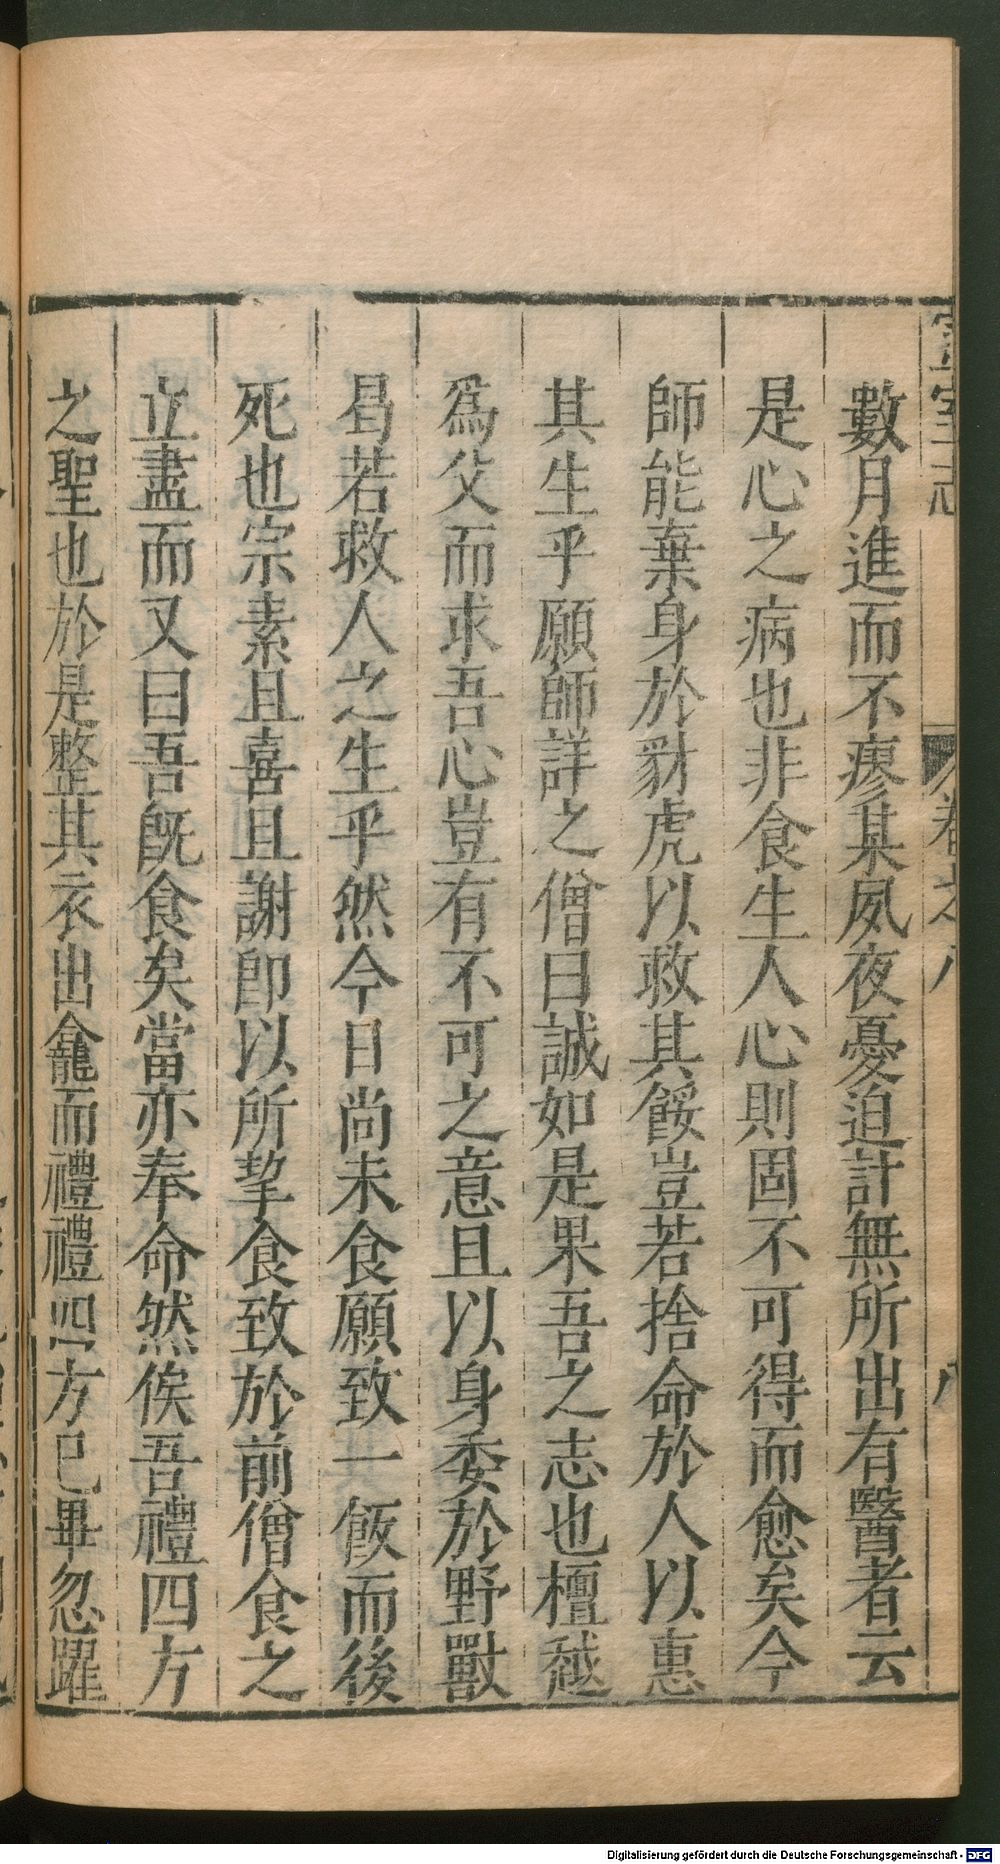 宣室志 卷之八 八
數月進而不瘳某夙夜憂迫計無所出有醫者云
是心之病也非食生人心則固不可得而愈矣今
師能棄身於豺虎以救其餒豈若捨命於人以惠
其生乎願師詳之僧曰誠如是果吾之志也檀越
爲父而求吾心豈有不可之意且以身委於野獸
曷若救人之生乎然今日尚未食願致一飯而後
死也宗素且喜且謝即以所挈食致於前僧食之
立盡而又曰吾既食矣當亦奉命然俟吾禮四方
之聖也於是整其衣出龕而禮禮四方已畢忽躍
Digitalisierung gefördert durch die Deutsche Forschungsgemeinschaft - DFG